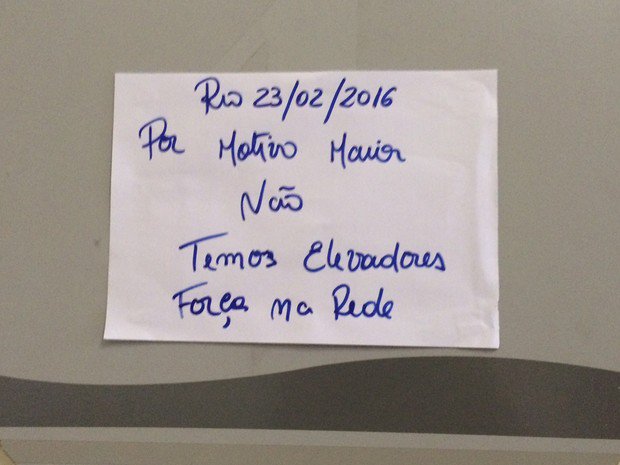 Rio 23/02/2016
Por Motivo Maior
Não
Temos Elevadores
Força na Rede